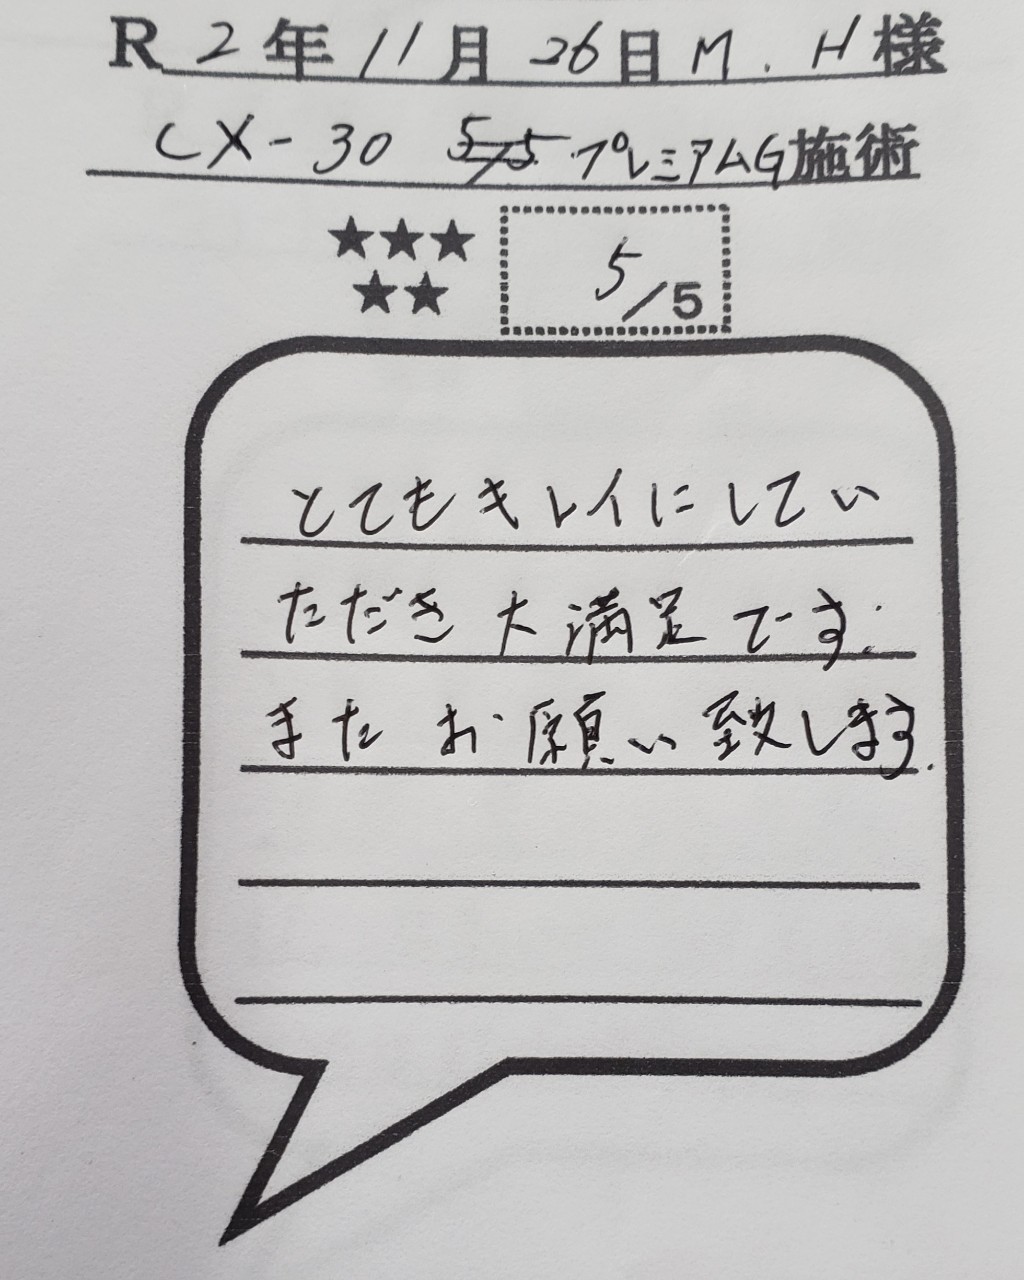 R2年11月26日 M.H様
CX-30 プレミアムG施術
★★★
★★
5/5
とてもキレイにしてい
ただき大満足です.
またお願い致します.